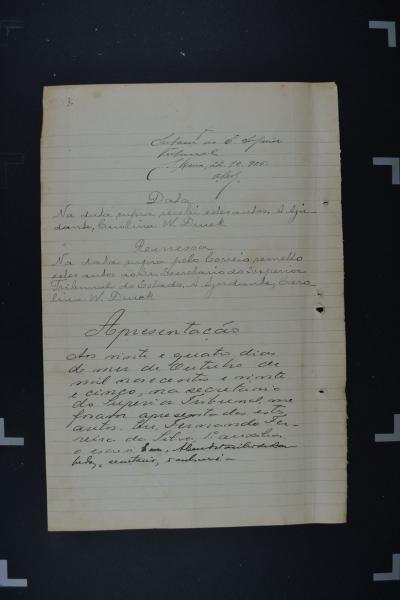 Tribunal
22.10.925.
Data
Na data supra recebi estes autos. A Aju-
dante, Carolina W. Duck
Remessa
Na data supra pelo Correio remetto
estes autos ao Snr. Secretario do Superior
Tribunal do Estado. A Ajudante, Caro-
lina W. Duck
Apresentação
Aos vinte e quatro dias
do mez de Outubro de
mil novecentos e vinte
e cinco, na secretaria
do Superior Tribunal, me
foram apresentados estes
autos. Eu, Fernando Fer-
reira da Silva,
o escrevi. Eu,
secretario, subscrevi